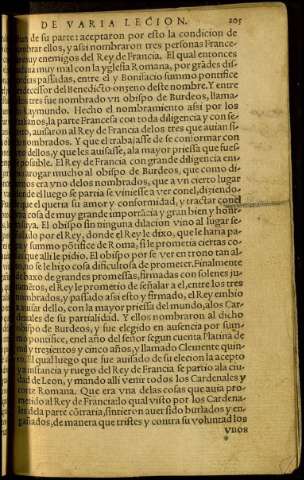 DE VARIA LECION. 205
de su parte: aceptaron por esto la condicion de
nombrar ellos, y assi nombraron tres personas France-
muy enemigos del Rey de Francia. El qual entonces
muy mal con la yglesia Romana, por grãdes dis-
passadas, entre el y Bonifacio summo pontifice
del Benedicto onzeno deste nombre. Y entre
tres fue nombrado vn obispo de Burdeos, llama-
Raymundo. Hecho el nombramiento assi por los
la parte Francesa con toda diligencia y con se-
auisaron al Rey de Francia delos tres que auian si-
nombrados. Y que el trabajasse de se conformar con
dellos, y que les auisasse, ala mayor priessa que fues-
possible. El Rey de Francia con grande diligencia em-
rogar mucho al obispo de Burdeos, que como di-
era vno delos nombrados, que a vn cierto lugar
luego se partia se viniesse a ver conel, diziendo,
que el queria su amor y conformidad, y tractar conel
cosa de muy grande importãcia y gran bien y honr-
suya. El obispo sin ninguna dilacion vino al lugar se-
por el Rey, donde el Rey le dixo, que le haria pa-
y summo põtifice de Roma, si le prometia ciertas co-
que alli le pidio. El obispo por se ver en trono tan al-
no se le hizo cosa dificultosa de prometer. Finalmente
debaxo de grandes promessas, firmadas con solenes ju-
el Rey le prometio de señalar a el, entre los tres
nombrados, y passado assi esto y firmado, el Rey embio
dello, con la mayor priessa del mundo, alos Car-
de su partialidad. Y ellos nombraron al dicho
obispo de Burdeos, y fue elegido en ausencia por sum-
pontifice, enel año del señor segun cuenta Platina de
mil y trezientos y cinco años, y llamado Clemente quin-
qual luego que fue auisado de su elecion la acepto
instancia y ruego del Rey de Francia se partio ala ciu-
dad de Leon, y mando alli venir todos los Cardenales y
corte Romana. Que era vna delas cosas que auia pro-
metido al Rey de Francia: lo qual visto por los Cardena-
les dela parte cõtraria, sintieron auer sido burlados y en-
gañados, de manera que tristes y contra su voluntad los
vuor